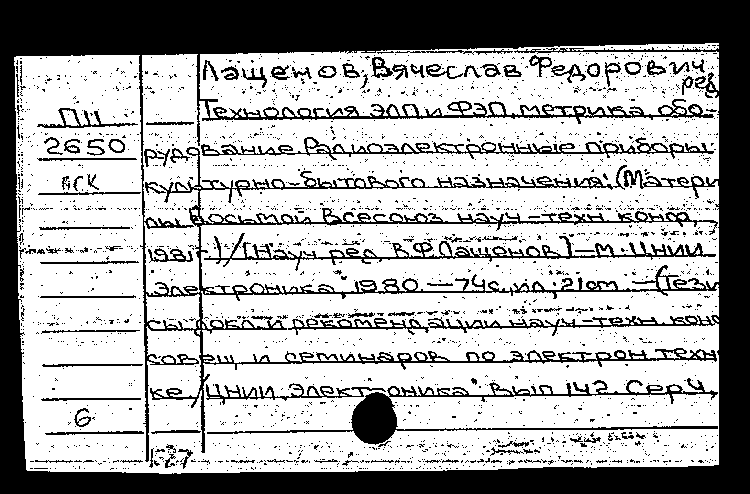 Лащенов, Вячеслав Федорович
ред
Технология ЭЛП и ФЭП, метрика, обо-
П11
2650
рудование. Радиоэлектронные приборы
ВСК
культурно-бытового назначения: (Матери
лы Восьмой Всесоюз. науч-техн. конф.,
1981г.)/[Науч. ред. В.Ф. Лащенов]—М.: ЦНИИ
"Электроника", 1980.—74с., ил; 21cm.—(Тези
сы докл. и рекомендации науч-техн. конф
совещ. и семинаров по электрон. техн
ке./ЦНИИ "Электроника"; Вып 142. Сер.4,
6